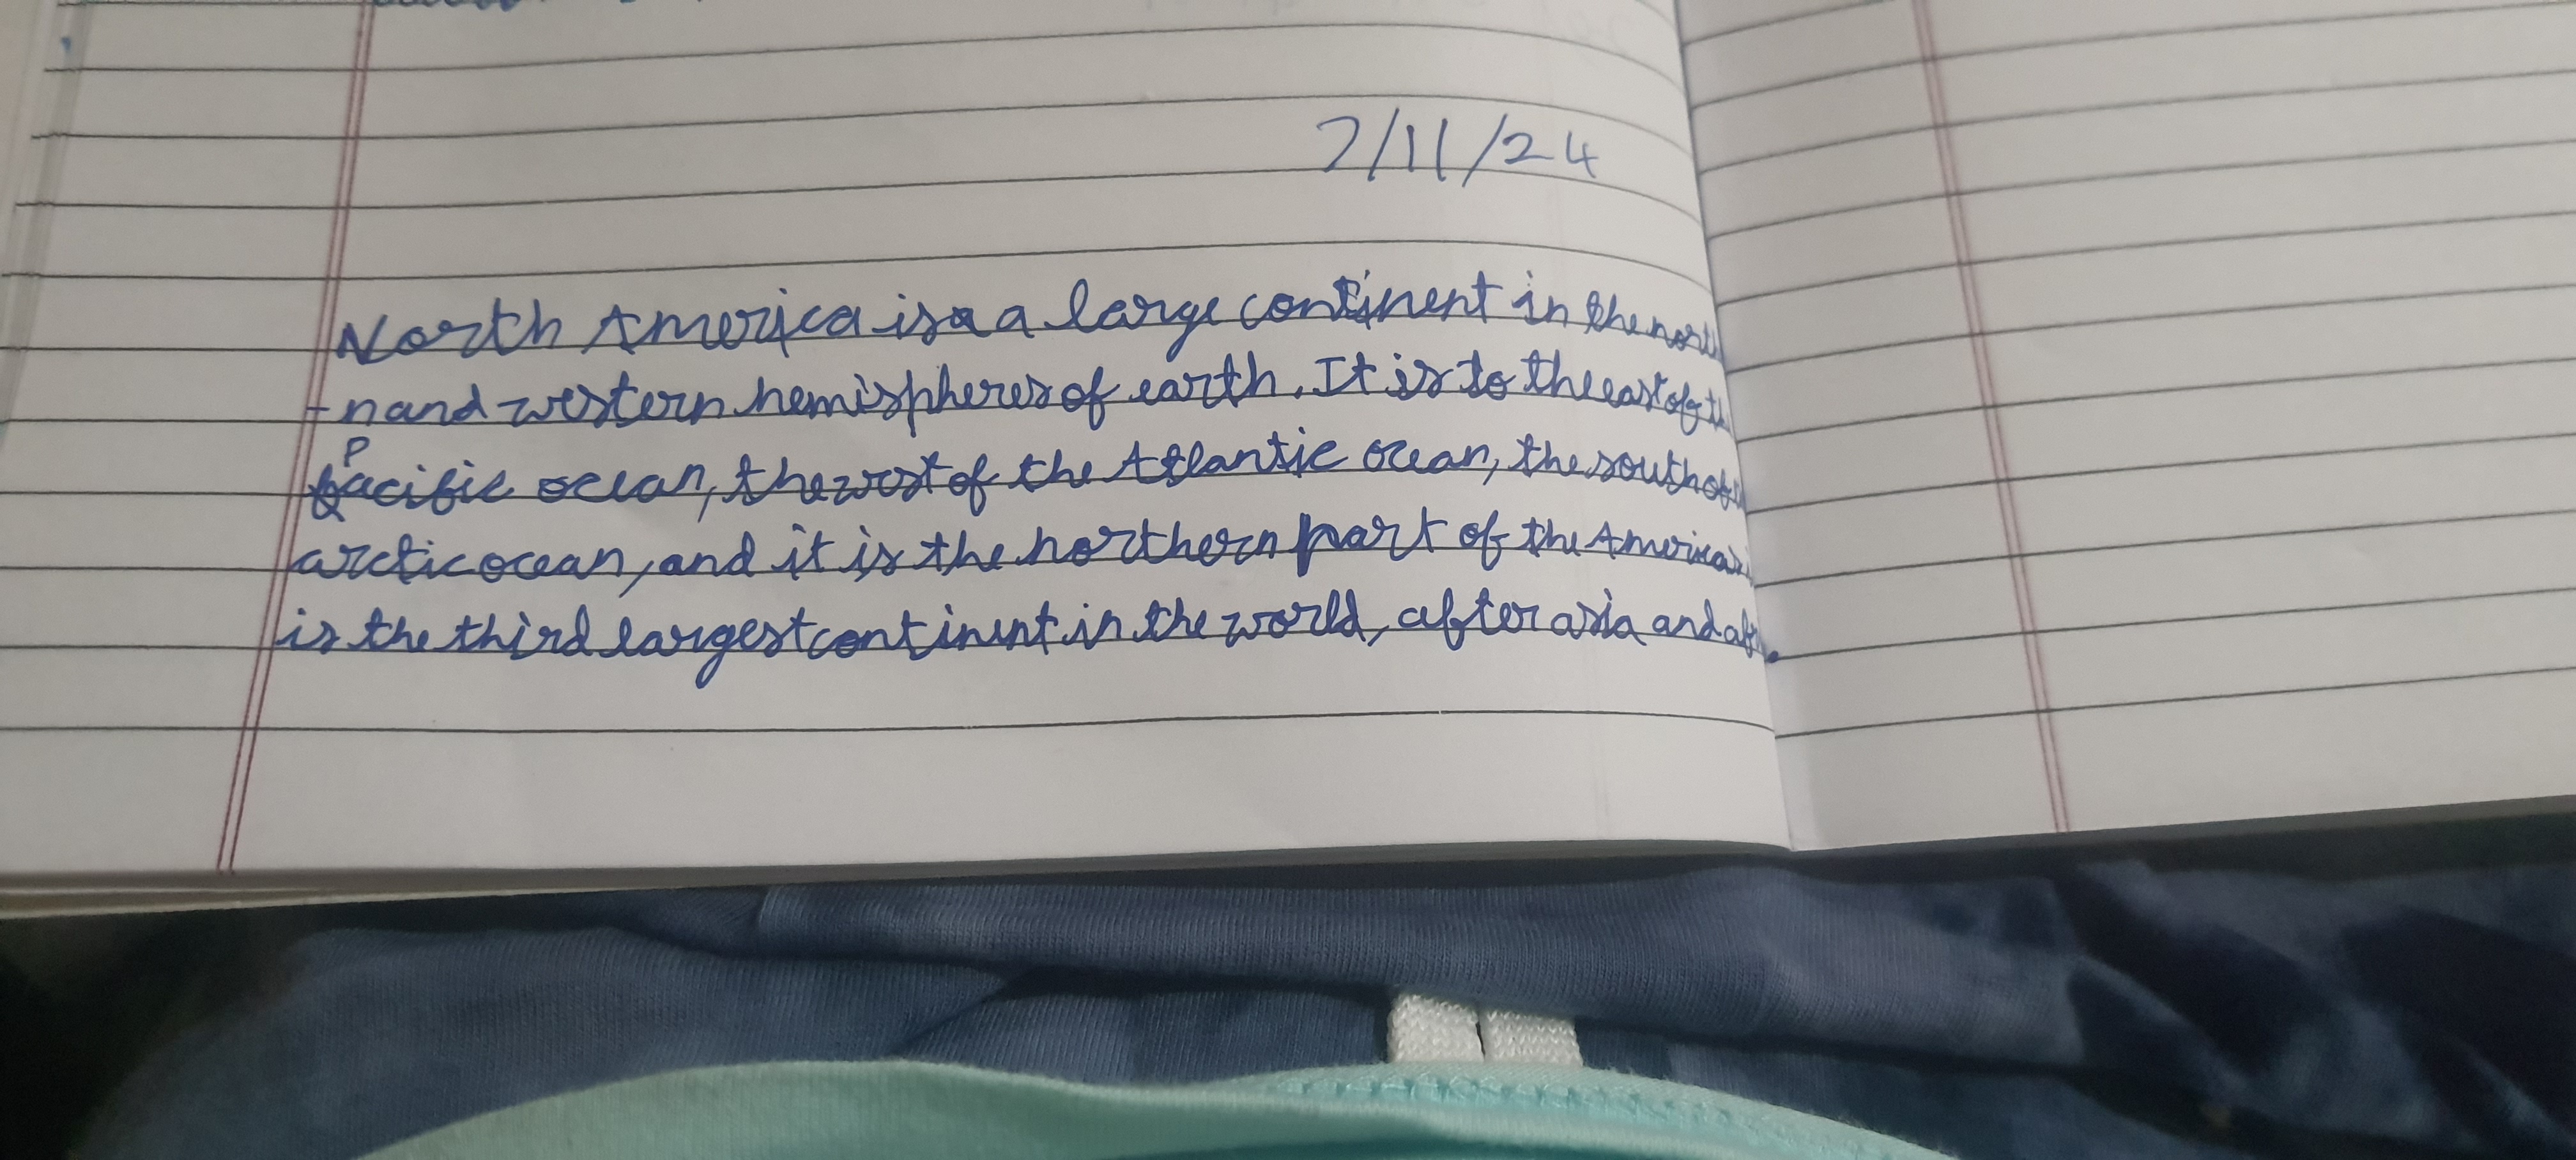 7/11/24
North America is a a large continent in the
-n and western hemispheres of earth. It is to the east of
Pacific ocean, the west of the Atlantic ocean, the south of
arctic ocean, and it is the northern part of the Americas
is the third largest continent in the world, after asia and